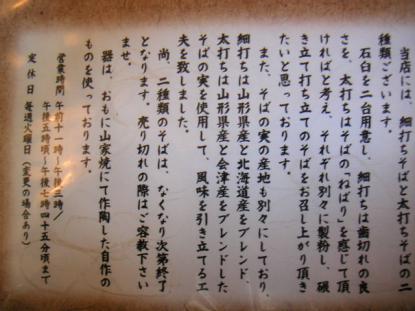 当店には、細打ちそばと太打ちそばの二
種類ございます。
石臼を二台用意し、細打ちは歯切れの良
さを、太打ちはそばの「ねばり」を感じて頂
ければと考え、それぞれ別々に製粉し、碾
き立て打ち立てのそばをお召し上がり頂き
たいと思っております。
また、そばの実の産地も別々にしており、
細打ちは山形県産と北海道産をブレンド、
太打ちは山形県産と会津産をブレンドした
そばの実を使用して、風味を引き立てる工
夫を致しました。
尚、二種類のそばは、なくなり次第終了
となります。売り切れの際はご容赦下さい
ませ。
器は、おもに山家焼にて作陶した自作の
ものを使っております。
営業時間 午前十一時〜午後三時/
午後五時頃〜午後七時四十五分頃まで
定休日 毎週火曜日(変更の場合あり)